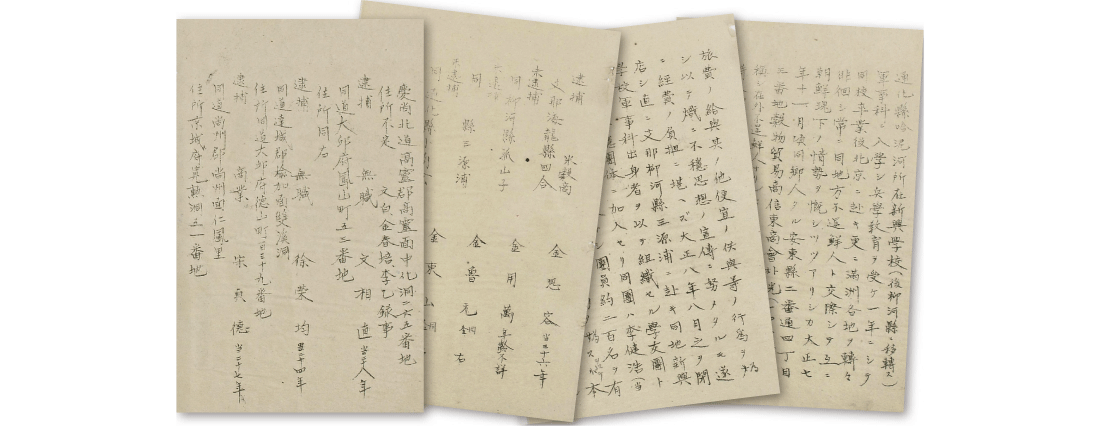 通化縣哈泥河所在新興學校(後柳河縣ニ移轉ス)
軍事科ニ入學シ兵學敎育ヲ受ケ一年ニシテ
同校卒業後北京ニ赴キ更ニ滿洲各地ヲ轉々
徘徊シ常ニ同地方不逞鮮人ト交際シ
朝鮮現下ノ情勢ヲ慨シツツアリシカ大正七
年十一月頃同鄕人タル安東縣二番通四丁目
三番地穀物貿易商信東商會
稱シ在外不逞鮮人
旅費ノ給與其ノ他便宜ノ供與等ノ行爲ヲ
シ以テ熾ニ不穩思想ノ宣傳ニ努メタルモ遂
ニ經費ノ負擔ニ堪ヘズ大正八年八月之ヲ閉
店シ直ニ支那柳河縣三源浦ニ赴キ同地新興
學校軍事科出身者ヲ以テ組織セル學友團ト
加入セリ同團ハ李健浩(当
團員約二百名ヲ有
米穀商
逮捕 金思容 当三十六年
支那海龍縣四合
未逮捕 金用萬 年齡不詳
同柳河縣孤山子
同 金魯元
縣三源浦
未逮捕 金東山 同
慶尚北道高靈郡高靈面中化洞二六五番地
住所不定 文白金春培李乙録事
逮捕 無職 文相直 当二十八年
同道大邱府鳳山町五三番地
住所同右
逮捕 無職 徐榮均 当三十四年
同道達城郡 面雙溪洞
住所同道大邱府德山町百三十九番地
逮捕 商業 宋貞德 当二十七年
同道尚州郡尚州面仁鳳里
住所京城府 洞三一番地